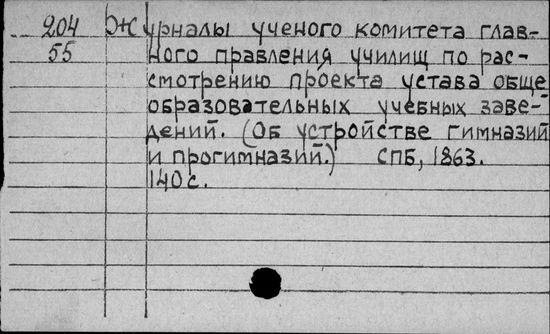 204 Журналы ученого комитета глав-
55 ного правления училищ по рас-
смотрению проекта устава обще
образовательных учебных заве-
дений. (Об устройстве гимназий
и прогимназий.) СПБ, 1863.
140 с.